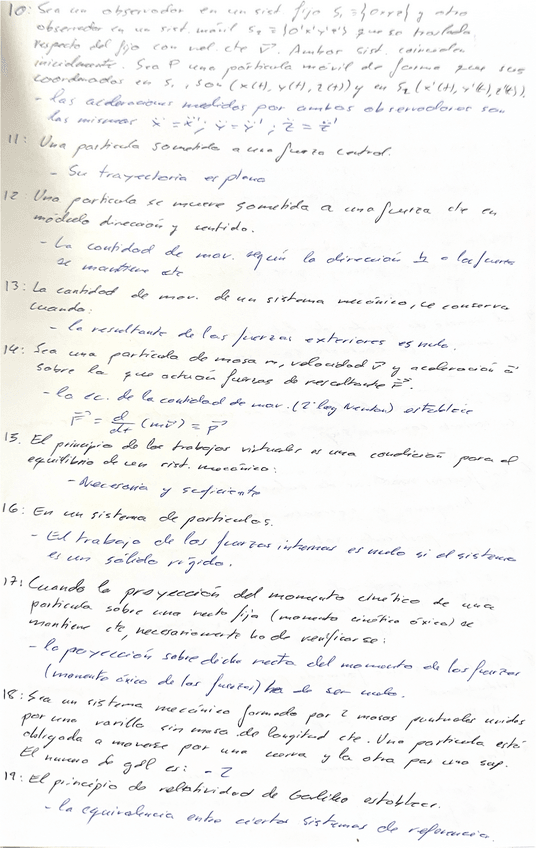 10: Sea un observador en un sist fijo S₁={Oxyz} y otro
observador en un sist. móvil S₂={O'x'y'z'} que se traslada
respecto del fijo con vel. cte v⃗. Ambos sist. coinciden
inicialmente. Sea P una partícula móvil de forma que sus
coordenadas en S₁, son (x(t), y(t), z(t)) y en S₂ (x'(t), y'(t), z'(t)).
- las aceleraciones medidas por ambos observadores son
las mismas ẍ=ẍ'; ÿ=ÿ'; z̈=z̈'
11: Una partícula sometida a una fuerza central.
- Su trayectoria es plana
12: Una partícula se mueve sometida a una fuerza cte en
módulo dirección y sentido.
- La cantidad de mov. según la dirección ⊥ a la fuerza
se mantiene cte
13: La cantidad de mov. de un sistema mecánico, se conserva
cuando:
- la resultante de las fuerzas exteriores es nula.
14: Sea una partícula de masa m, velocidad v⃗ y aceleración a⃗
sobre la que actúan fuerzas de resultante F⃗.
- la ec. de la cantidad de mov. (2ª ley Newton) establece
F⃗ = d/dt (mv⃗) = p⃗
15. El principio de los trabajos virtuales es una condición para el
equilibrio de un sist. mecánico:
- Necesaria y suficiente
16: En un sistema de partículas.
- El trabajo de las fuerzas internas es nulo si el sistema
es un sólido rígido.
17: Cuando la proyección del momento cinético de una
partícula sobre una recta fija (momento cinético áxico) se
mantiene cte, necesariamente ha de verificarse:
- la proyección sobre dicha recta del momento de las fuerzas
(momento áxico de las fuerzas) ha de ser nula.
18: Sea un sistema mecánico formado por 2 masas puntuales unidas
por una varilla sin masa de longitud cte. Una partícula está
obligada a moverse por una curva y la otra por una sup.
El numero de gdl es: - 2
19: El principio de relatividad de Galileo establece.
- la equivalencia entre ciertos sistemas de referencia.